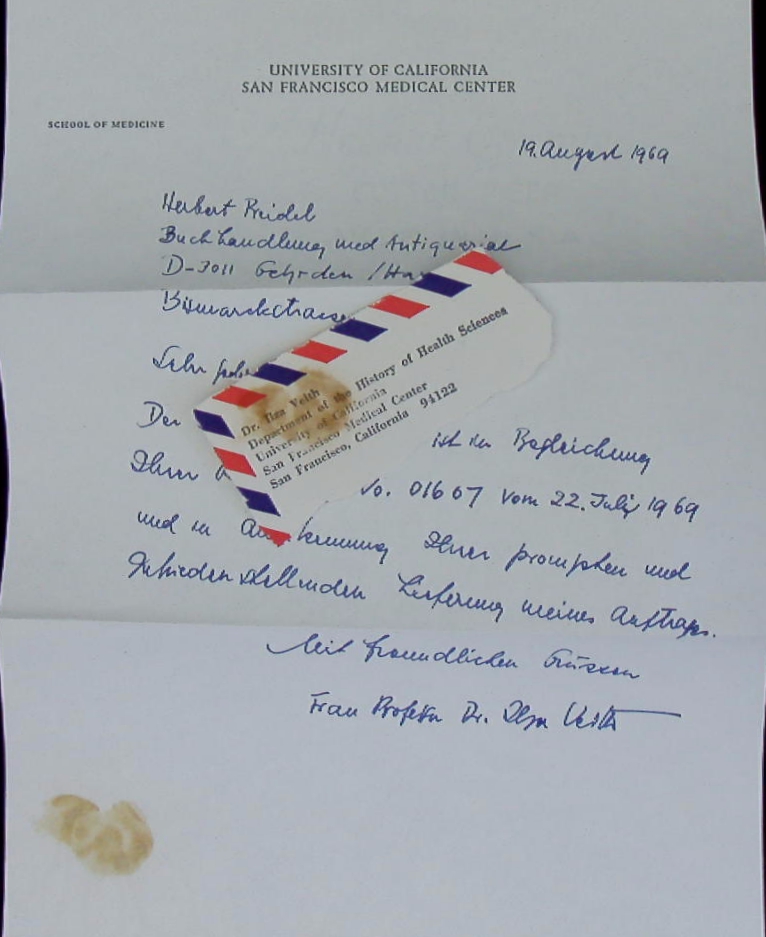 UNIVERSITY OF CALIFORNIA
SAN FRANCISCO MEDICAL CENTER
SCHOOL OF MEDICINE
19. August 1969
Herbert Reidel
Buchhandlung und Antiquariat
D-3011 Gehrden /Ha
Bismarckstrasse
Sehr
Dr. Ilza Veith
Department of the History of Health Sciences
University of California
San Francisco Medical Center
San Francisco, California 94122
Der
ist in Begleichung
Ihrer
No. 01667 vom 22. July 1969
und in Anerkennung Ihrer prompten und
zufriedenstellenden Lieferung meines Auftrags.
Mit freundlichen Grüssen
Frau Professor Dr. Ilza Veith